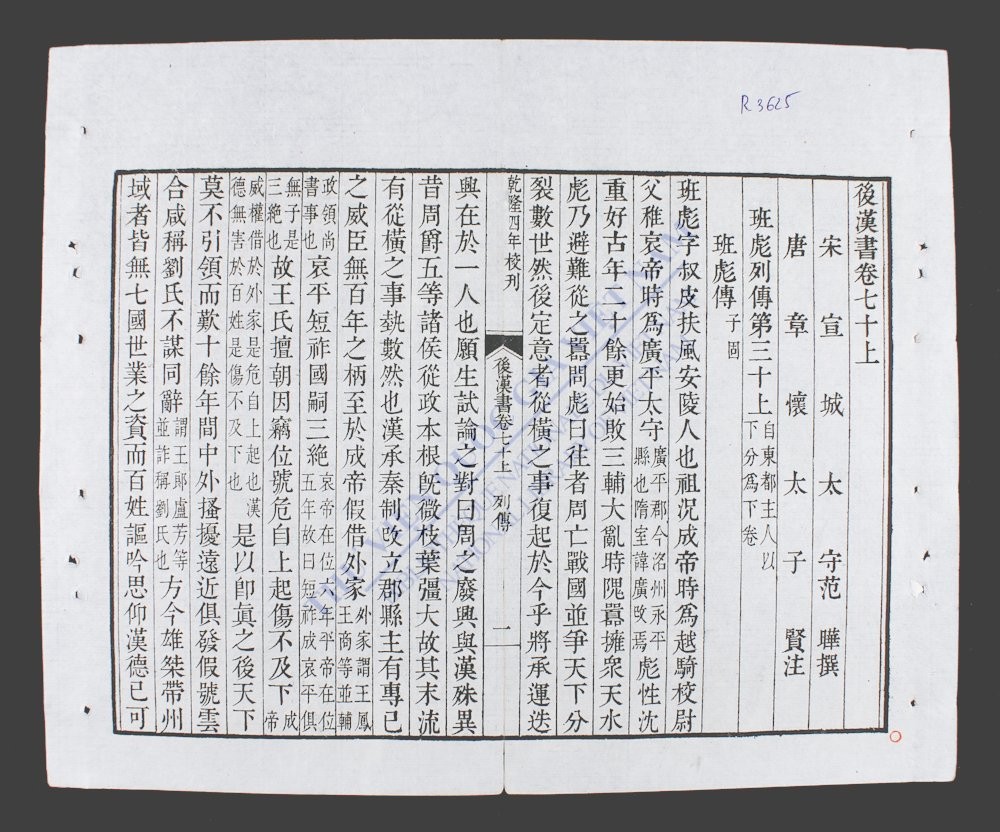 R.3625
後漢書卷七十上
宋宣城太守范曄撰
唐章懷太子賢注
班彪列傳第三十上自東都主人以下分為下卷
班彪傳子固
班彪字叔皮扶風安陵人也祖況成帝時爲越騎校尉
父稚哀帝時爲廣平太守廣平郡今洺州永平縣也隋室諱廣改焉彪性沈
重好古年二十餘更始敗三輔大亂時隗囂擁衆天水
彪乃避難從之囂問彪曰往者周亡戰國並爭天下分
裂數世然後定意者從橫之事復起於今乎將承運迭
乾隆四年校刋
後漢書卷七十上 列傳 一
興在於一人也願生試論之對曰周之廢興與漢殊異
昔周爵五等諸侯從政本根旣微枝葉彊大故其末流
有從橫之事埶數然也漢承秦制改立郡縣主有專己
之威臣無百年之柄至於成帝假借外家外家謂王鳳王商等並輔
政領尚書事也哀平短祚國嗣三絶哀帝在位六年平帝在位五年故曰短祚成哀平俱
無子是三絶也故王氏擅朝因竊位號危自上起傷不及下成帝
威權借於外家是危自上起也漢德無害於百姓是傷不及下也是以卽眞之後天下
莫不引領而歎十餘年間中外搔擾遠近俱發假號雲
合咸稱劉氏不謀同辭謂王郞盧芳等並詐稱劉氏也方今雄桀帶州
域者皆無七國世業之資而百姓謳吟思仰漢德已可
THƯ VIỆN QUỐC GIA VIỆT NAM
NATIONAL LIBRARY OF VIETNAM